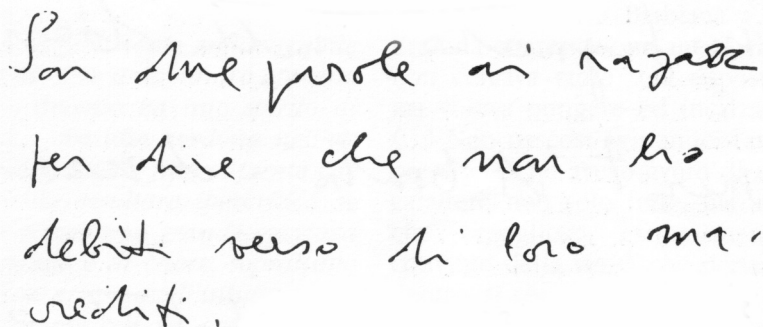 Son due parole ai ragazz
per dire che non ho
debiti verso di loro ma
crediti.